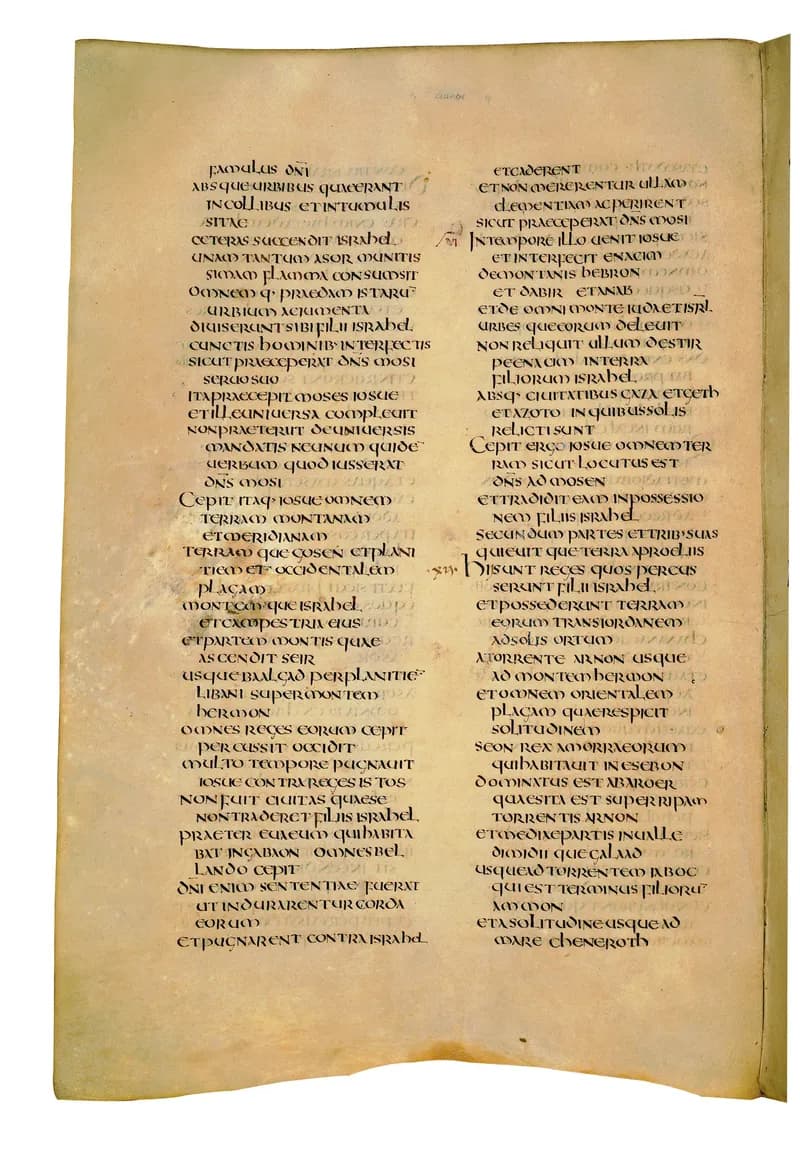 FAMULUS DN̄I
ABSQUE URBIBUS QUAE ERANT
IN COLLIBUS ET IN TUMULIS
SITAE
CETERAS SUCCENDIT ISRAHEL
UNAM TANTUM ASOR MUNITIS
SIMAM FLAMMA CONSUMSIT
OMNEM Q· PRAEDAM ISTARU̅
URBIUM AC IUMENTA
DIUISERUNT SIBI FILII ISRAHEL
CUNCTIS HOMINIB· INTERFECTIS
SICUT PRAECEPERAT DN̄S MOSI
SERUO SUO
ITA PRAECEPIT MOSES IOSUE
ET ILLE UNIUERSA COMPLEUIT
NON PRAETERIIT DE UNIUERSIS
MANDATIS NE UNUM QUIDE̅
UERBUM QUOD IUSSERAT
DN̄S MOSI
CEPIT ITAQ· IOSUE OMNEM
TERRAM MONTANAM
ET MERIDIANAM
TERRAM QUE GOSEN ET PLANI
TIEM ET OCCIDENTALEM
PLAGAM
MONTEM QUE ISRAHEL
ET CAMPESTRIA EIUS
ET PARTEM MONTIS QUAE
ASCENDIT SEIR
USQUE BAALGAD PER PLANITIE̅
LIBANI SUPER MONTEM
HERMON
OMNES REGES EORUM CEPIT
PERCUSSIT OCCIDIT
MULTO TEMPORE PUGNAUIT
IOSUE CONTRA REGES ISTOS
NON FUIT CIUITAS QUAE SE
NON TRADERET FILIIS ISRAHEL
PRAETER EUAEUM QUI HABITA
BAT IN GABAON OMNES BEL
LANDO CEPIT
DN̄I ENIM SENTENTIAE FUERAT
UT INDURARENTUR CORDA
EORUM
ET PUGNARENT CONTRA ISRAHEL
ET CADERENT
ET NON MERERENTUR ULLAM
CLEMENTIAM AC PERIRENT
SICUT PRAECEPERAT DN̄S MOSI
IN TEMPORE ILLO UENIT IOSUE
ET INTERFECIT ENACIM
DE MONTANIS HEBRON
ET DABIR ET ANAB
ET DE OMNI MONTE IUDA ET ISR̄L
URBES QUE EORUM DELEUIT
NON RELIQUIT ULLUM DE STIR
PE ENACIM IN TERRA
FILIORUM ISRAHEL
ABSQ· CIUITATIBUS GAZA ET GETH
ET AZOTO IN QUIBUS SOLIS
RELICTI SUNT
CEPIT ERGO IOSUE OMNEM TER
RAM SICUT LOCUTUS EST
DN̄S AD MOSEN
ET TRADIDIT EAM IN POSSESSIO
NEM FILIIS ISRAHEL
SECUNDUM PARTES ET TRIB· SUAS
QUIEUIT QUE TERRA A PROELIIS
XII· HII SUNT REGES QUOS PERCUS
SERUNT FILII ISRAHEL
ET POSSEDERUNT TERRAM
EORUM TRANS IORDANEM
AD SOLIS ORTUM
A TORRENTE ARNON USQUE
AD MONTEM HERMON
ET OMNEM ORIENTALEM
PLAGAM QUAE RESPICIT
SOLITUDINEM
SEON REX AMORRAEORUM
QUI HABITAUIT IN ESEBON
DOMINATUS EST AB AROER
QUAE SITA EST SUPER RIPAM
TORRENTIS ARNON
ET MEDIAE PARTIS IN UALLE
DIMIDII QUE GALAAD
USQUE AD TORRENTEM IABOC
QUI EST TERMINUS FILIORU̅
AMMON
ET A SOLITUDINE USQUE AD
MARE CHENEROTH